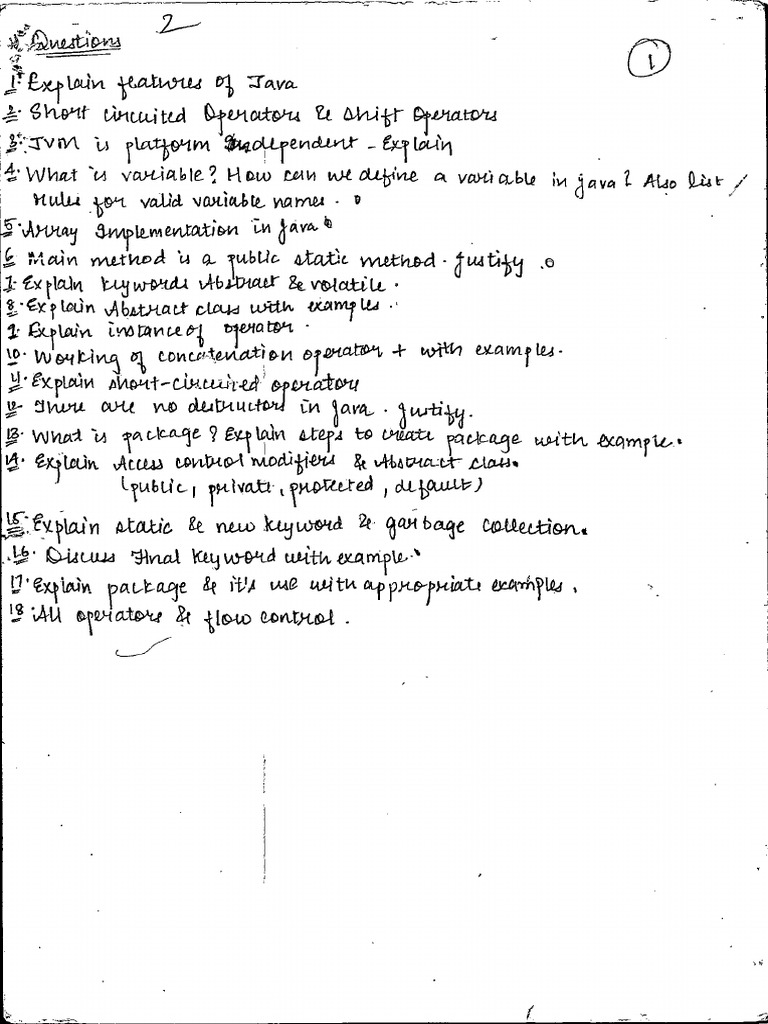 2
Questions
1
1. Explain features of Java
2. Short circuited Operators & Shift Operators
3. JVM is platform Independent - Explain
4. What is variable? How can we define a variable in java? Also list
rules for valid variable names.
5. Array Implementation in Java
6. Main method is a public static method. Justify.
7. Explain keywords Abstract & volatile.
8. Explain Abstract class with examples.
9. Explain instance of operator.
10. Working of concatenation operator + with examples.
11. Explain short-circuited operators
12. There are no destructors in Java. Justify.
13. What is package? Explain steps to create package with example.
14. Explain Access control modifiers & Abstract class.
(public, private, protected, default)
15. Explain static & new keyword & garbage collection.
16. Discuss Final keyword with example.
17. Explain package & it's use with appropriate examples.
18 All operators & flow control.